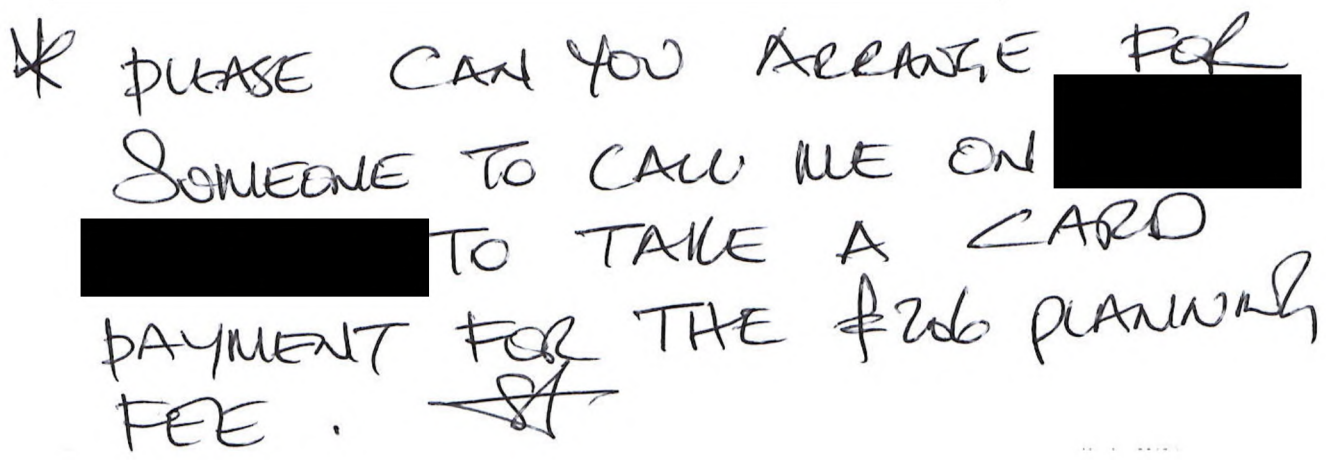 * PLEASE CAN YOU ARRANGE FOR
SOMEONE TO CALL ME ON
TO TAKE A CARD
PAYMENT FOR THE £206 PLANNING
FEE.